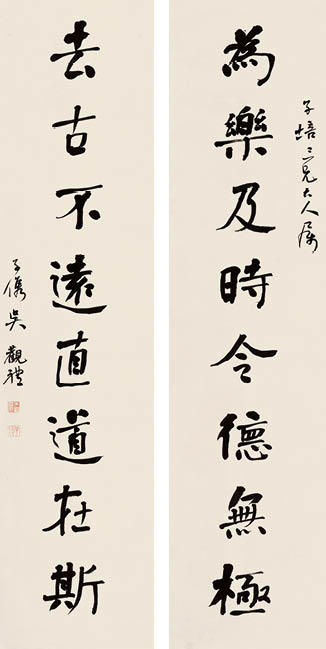 子培三兄大人属
為樂及時令德無極
去古不遠直道在斯
子儁吳觀禮